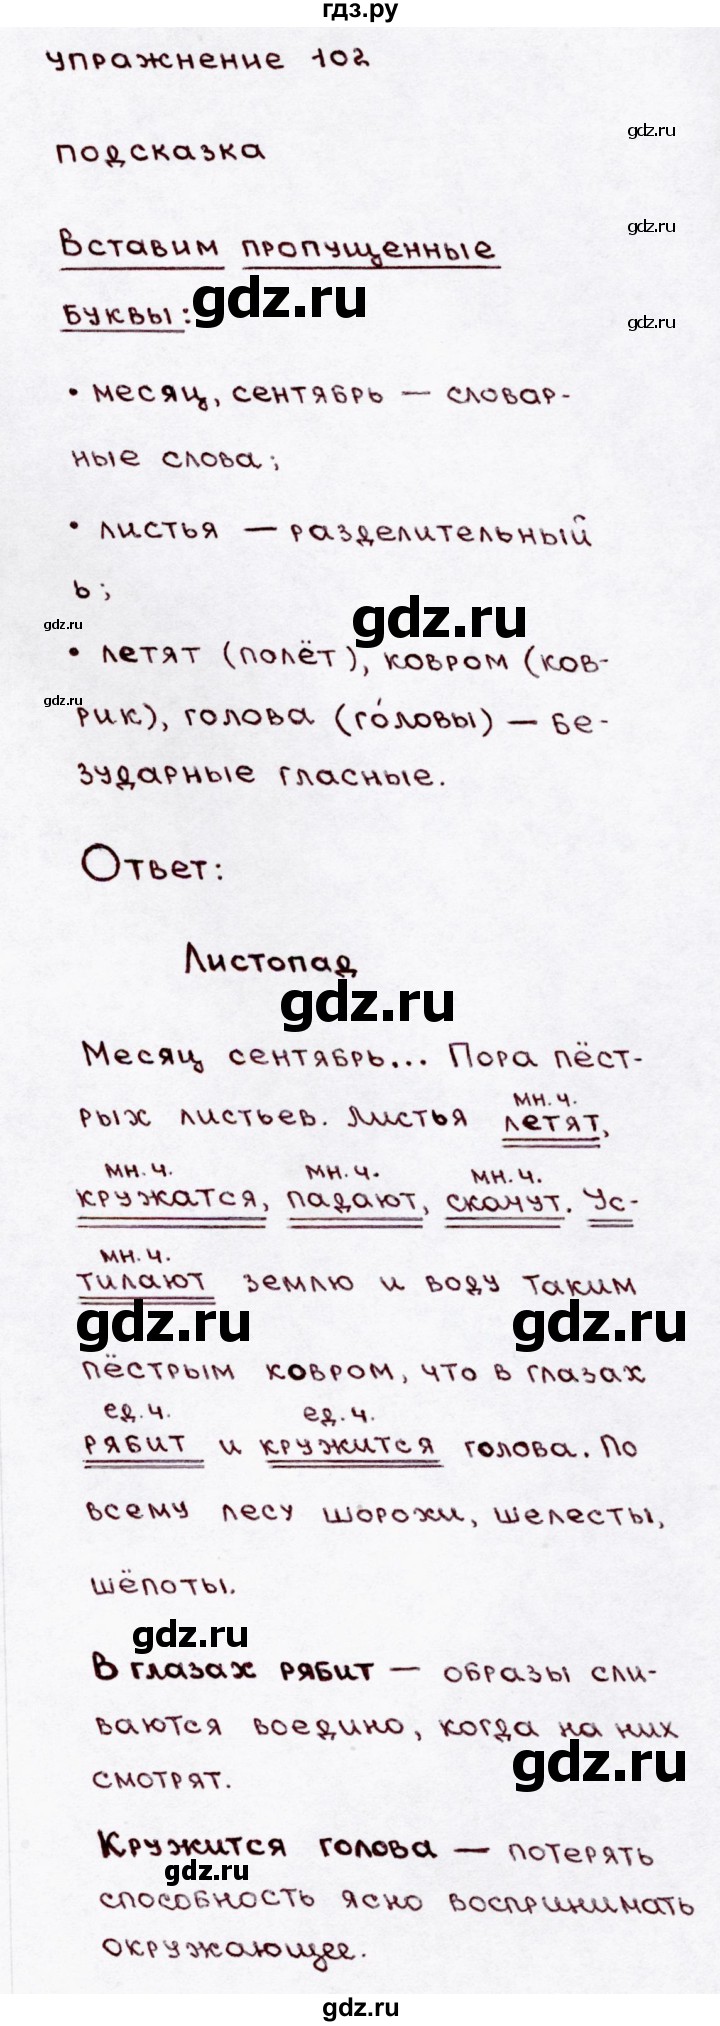 гдз.ру
упражнение 102
gdz.ru
подсказка
gdz.ru
Вставим пропущенные
gdz.ru
буквы:
gdz.ru
• месяц, сентябрь — словар-
ные слова;
• листья — разделительный
ь;
gdz.ru
gdz.ru
• летят (полёт), ковром (ков-
gdz.ru
рик), голова (го́ловы) — бе-
зударные гласные.
Ответ:
Листопад
gdz.ru
Месяц сентябрь... Пора пёст-
мн.ч.
рых листьев. Листья летят,
мн.ч. мн.ч. мн.ч.
кружатся, падают, скачут. Ус-
мн.ч.
тилают землю и воду таким
gdz.ru gdz.ru
пёстрым ковром, что в глазах
ед.ч. ед.ч.
рябит и кружится голова. По
всему лесу шорохи, шелесты,
шёпоты.
gdz.ru
В глазах рябит — образы сли-
ваются воедино, когда на них
gdz.ru
смотрят.
Кружится голова — потерять
gdz.ru
способность ясно воспринимать
окружающее.
gdz.ru